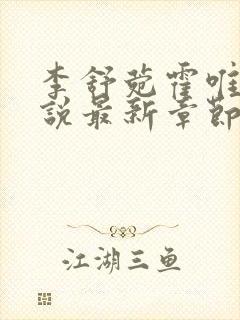 李舒菀霍唯
說最新章節
江湖三鱼